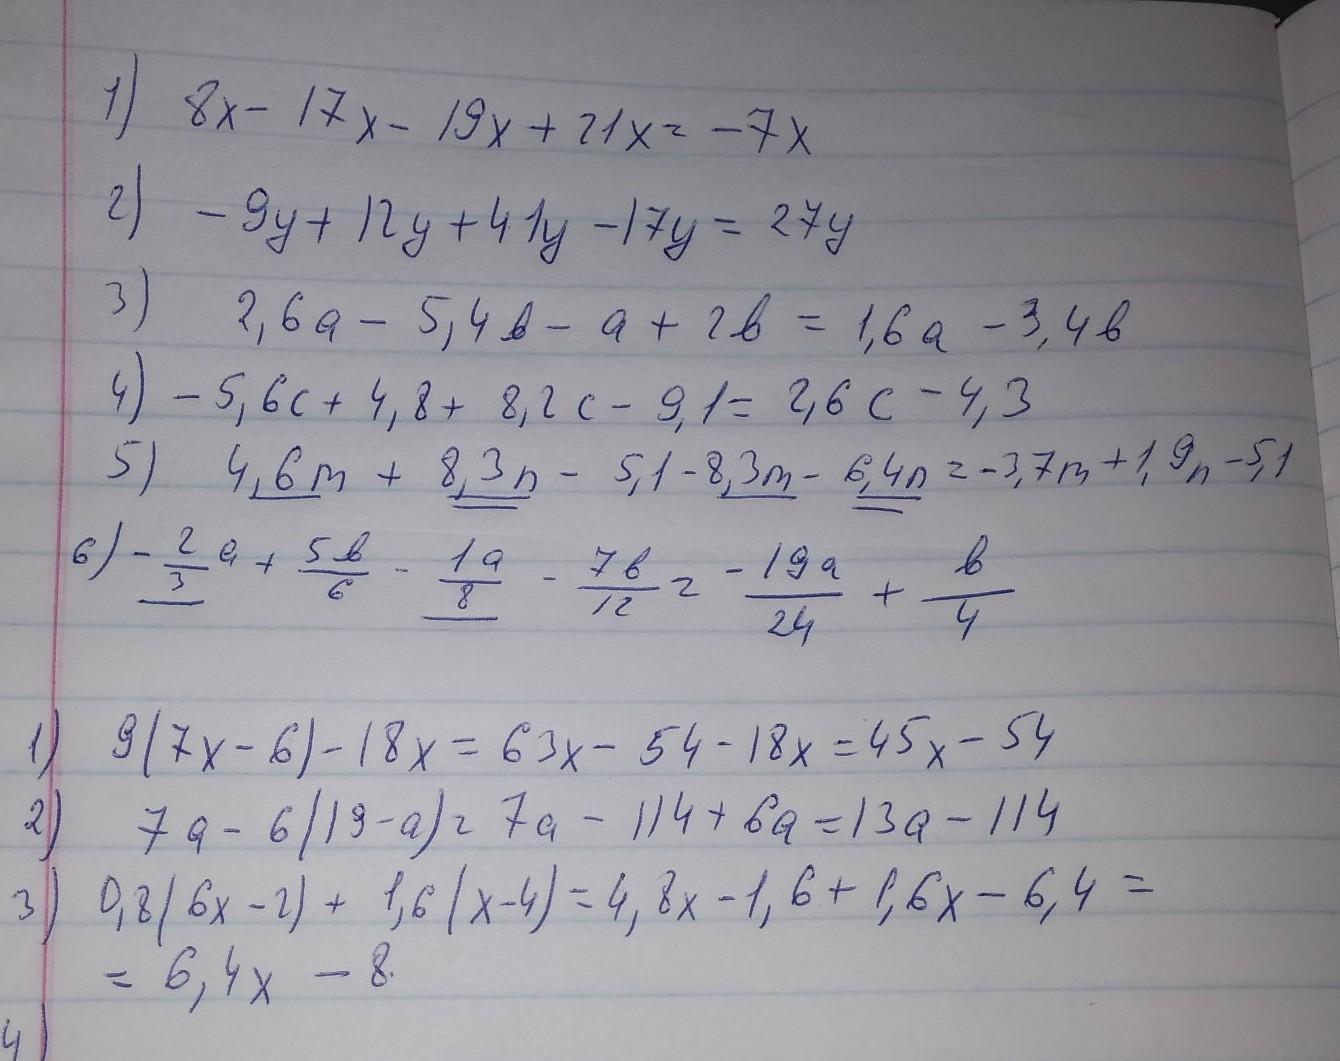 1) 8x - 17x - 19x + 21x = -7x
2) -9y + 12y + 41y - 17y = 27y
3) 2,6a - 5,4b - a + 2b = 1,6a - 3,4b
4) -5,6c + 4,8 + 8,2c - 9,1 = 2,6c - 4,3
5) 4,6m + 8,3n - 5,1 - 8,3m - 6,4n = -3,7m + 1,9n - 5,1
6) -2/3 a + 5b/6 - 1a/8 - 7b/12 = -19a/24 + b/4
1) 9(7x - 6) - 18x = 63x - 54 - 18x = 45x - 54
2) 7a - 6(19 - a) = 7a - 114 + 6a = 13a - 114
3) 0,8(6x - 2) + 1,6(x - 4) = 4,8x - 1,6 + 1,6x - 6,4 =
= 6,4x - 8.
4)